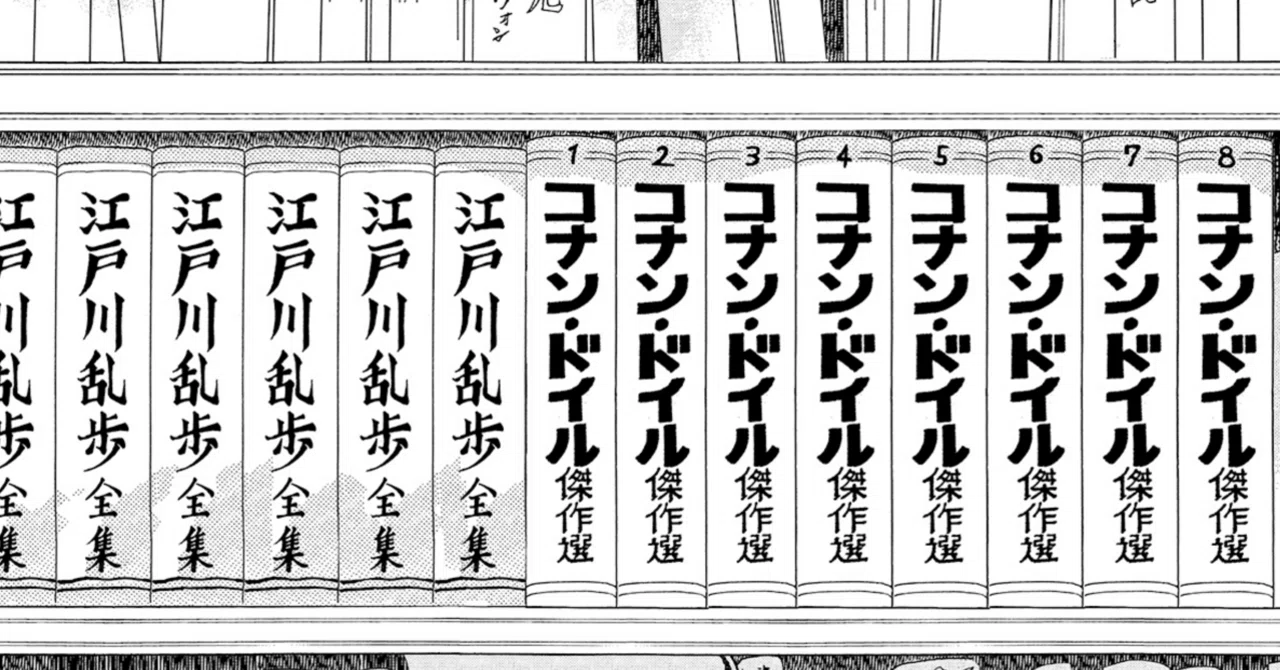 江戸川乱歩全集
江戸川乱歩全集
江戸川乱歩全集
江戸川乱歩全集
江戸川乱歩全集
江戸川乱歩全集
1 コナン・ドイル傑作選
2 コナン・ドイル傑作選
3 コナン・ドイル傑作選
4 コナン・ドイル傑作選
5 コナン・ドイル傑作選
6 コナン・ドイル傑作選
7 コナン・ドイル傑作選
8 コナン・ドイル傑作選